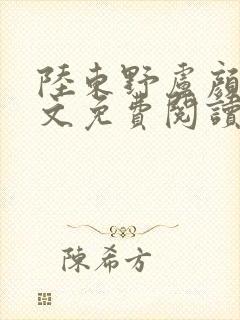 陸東野盧顔
文免費閱讀
陳希方